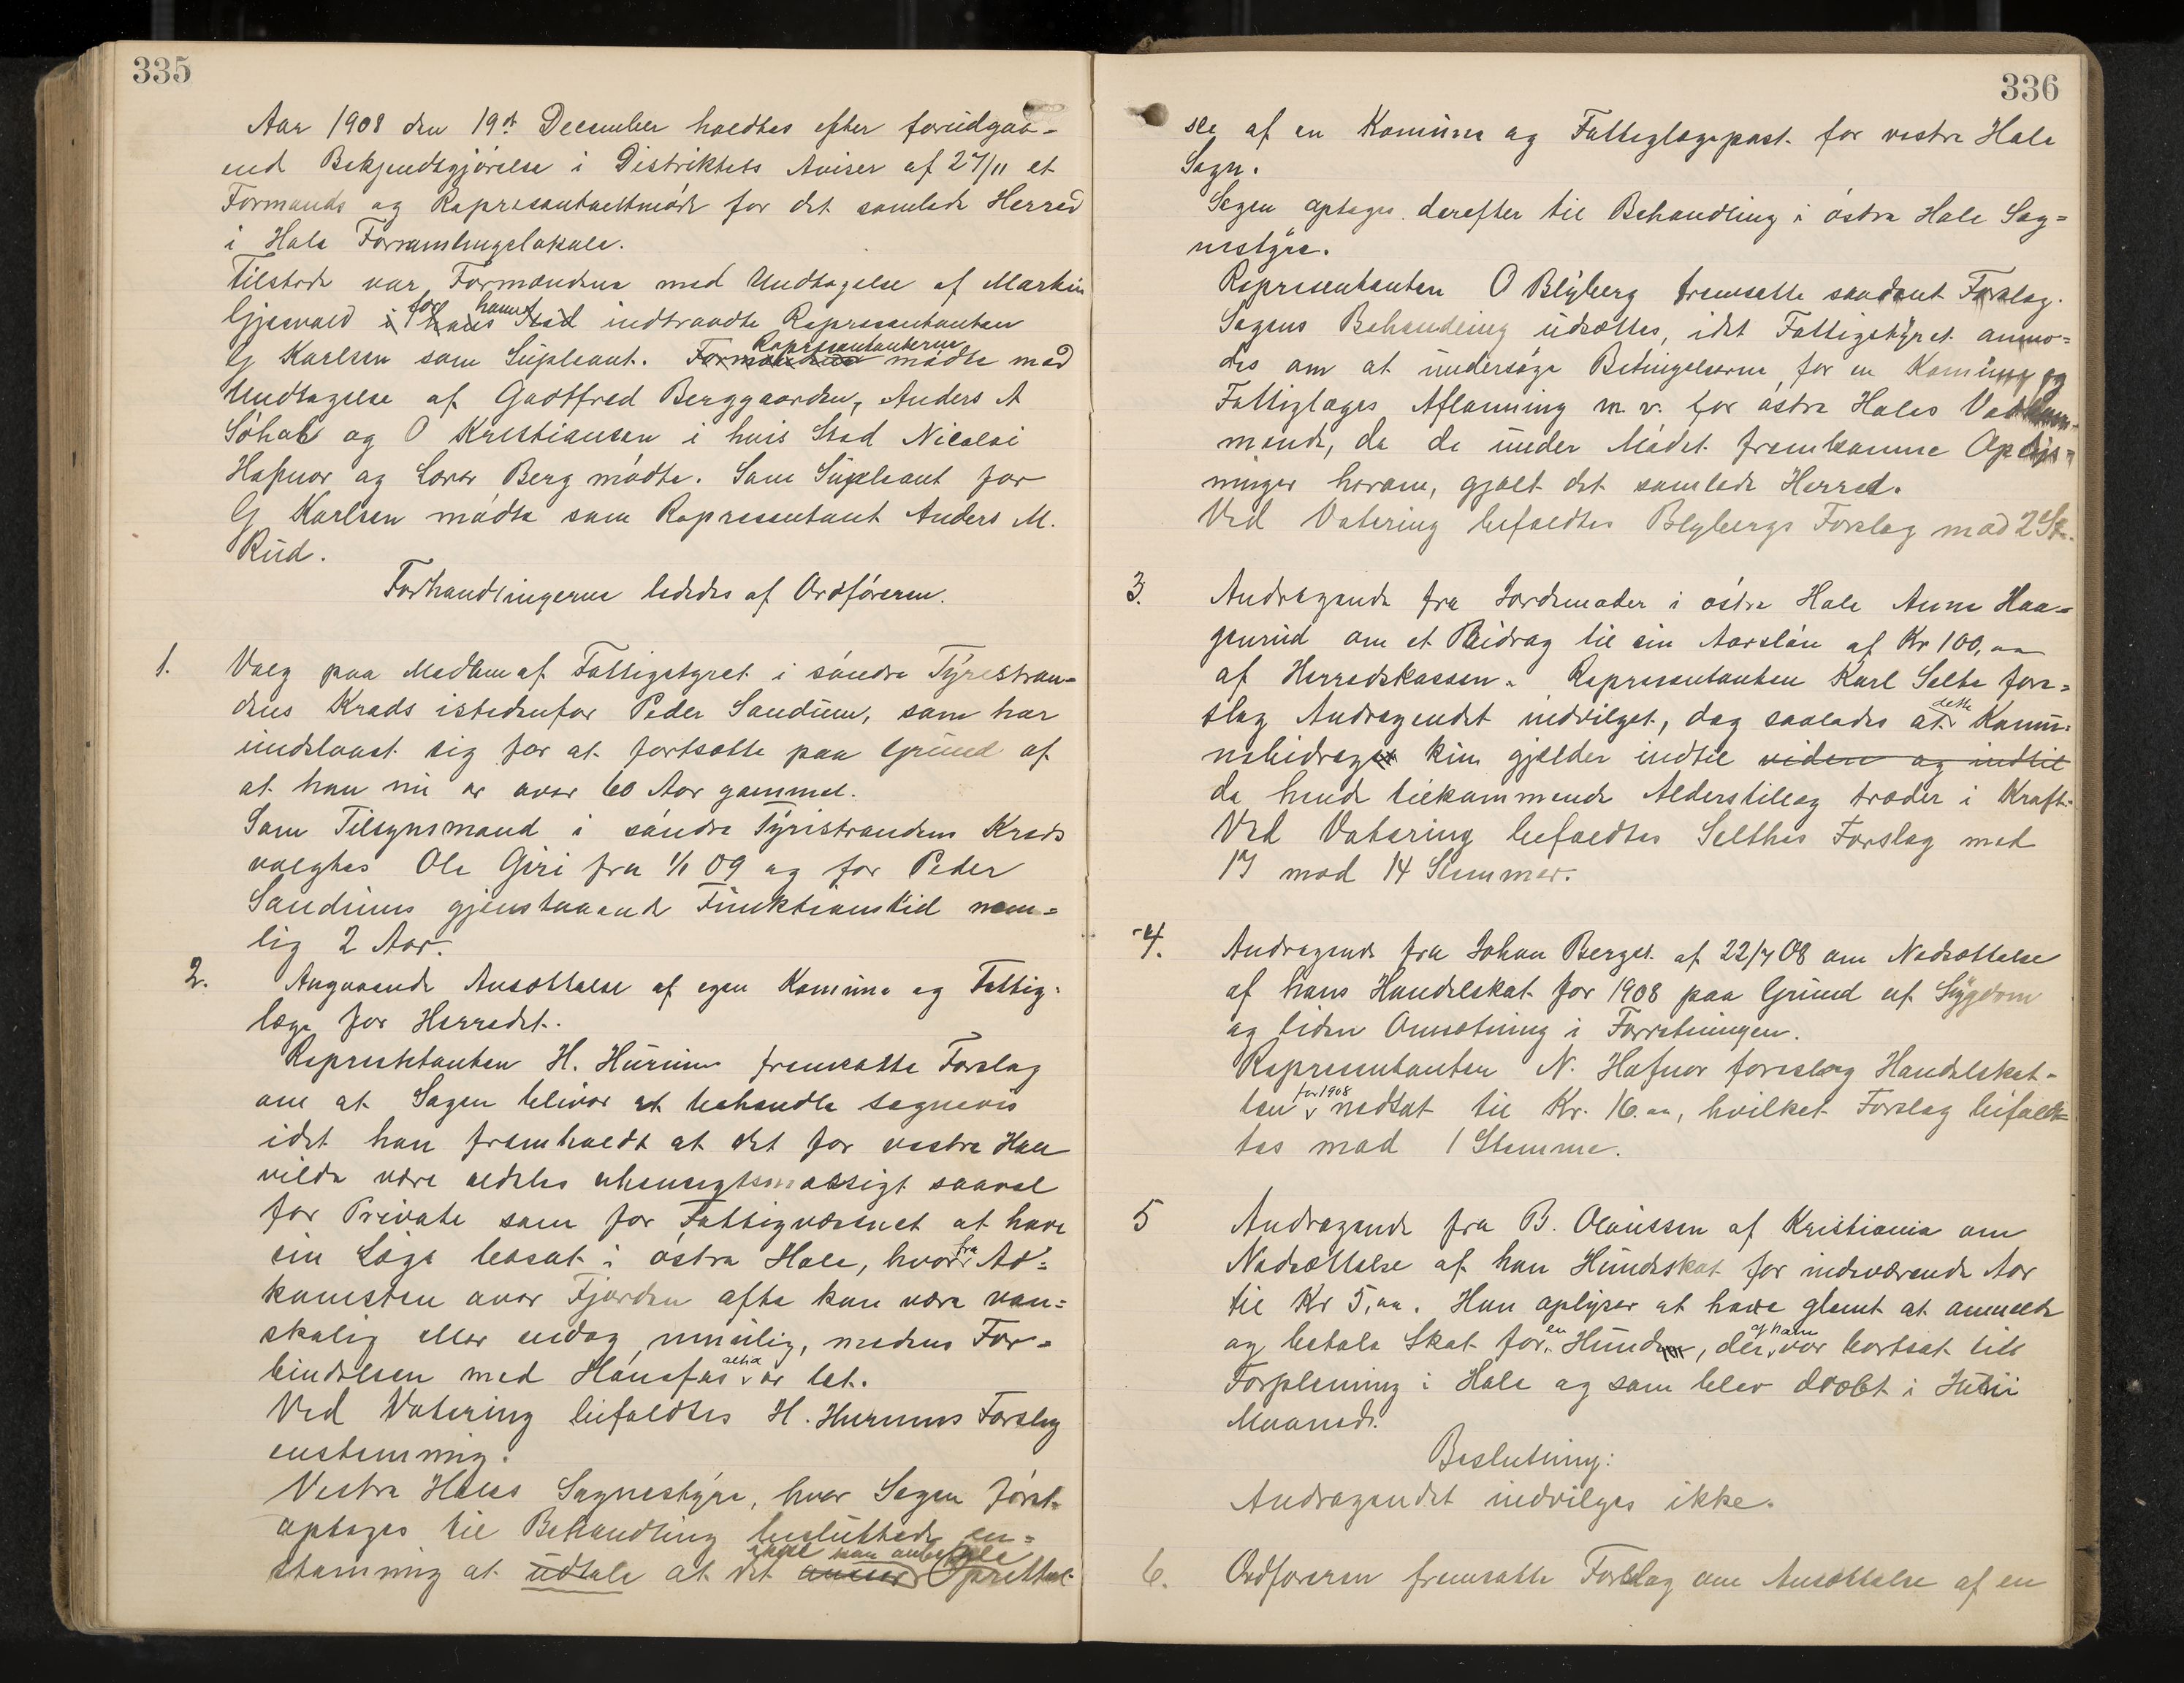 335
Aar 1908 den 19de December holdtes efter forudgaa-
end Bekjendtgjørelse i Distriktets Aviser af 27/11 et
Formands og Representantmøde for det samlede Herred
i Hole Forsamlingslokale.
Tilstede var Formændene med Undtagelse af Martin
Gjesvold i for hans ham Sted indtraadte Representanten
G Karlsen som Supleant. Formændene Representanterne mødte med
Undtagelse af Godtfred Berggaarden, Anders A
Søhol og O Kristiansen i hvis Sted Nicolai
Hafnor og Lorer Berg mødte. Som Supleant for
G Karlsen mødte som Representant Anders M.
Rud.
Forhandlingerne lededes af Ordføreren.
1. Valg paa Medlem af Fattigstyret i søndre Tyristran-
dens Kreds istedenfor Peder Sandum, som har
undslaaet sig for at fortsætte paa Grund af
at han nu er over 60 Aar gammel.
Som Tilsynsmand i søndre Tyristrandens Kreds
valgtes Ole Giri fra 1/1 09 og for Peder
Sandums gjenstaaende Funktionstid nem-
lig 2 Aar.
2. Angaaende Ansættelse af egen Komune og Fattig-
læge for Herredet.
Representanten H. Hurum fremsatte Forslag
om at Sagen bliver at behandle sognevis
idet han fremholdt at det for vestre Hole
vilde være aldeles uhensigtsmæssigt saavel
for Private som for Fattigvæsenet at have
sin Læge bosat i østre Hole, hvor fra Ad-
komsten over Fjorden ofte kan være van-
skelig eller endog umulig, medens For-
bindelsen med Hønefos altid er let.
Ved Votering bifaldtes H. Hurums Forslag
enstemmig.
Vestre Holes Sognestyre, hvor Sagen først
optoges til Behandling besluttede en-
stemmig at udtale at det anser ikke kan anbefale Oprettel-
336
se af en Komune og Fattiglægepost for vestre Hole
Sogn.
Sagen optoges derefter til Behandling i østre Hole Sog-
nestyre.
Representanten O Blyberg fremsatte saadant Forslag.
Sagens Behandling udsættes, idet Fattigstyret anmo-
des om at undersøge Betingelserne for en Komune og
Fattiglæges Aflønning m. v. for østre Holes Vedkom-
mende, da de under Mødet fremkomne Oplys-
ninger herom, gjalt det samlede Herred.
Ved Votering bifaldtes Blybergs Forslag mod 2 St.
3. Andragende fra Jordemoder i østre Hole Anne Haa-
genrud om et Bidrag til sin Aarsløn af Kr 100,00
af Herredskassen. Representanten Karl Selte fore-
slog Andragendet indvilget, dog saaledes at dette Komu-
nebidraget kun gjælder indtil videre og indtil
de hende tilkommende Alderstillæg træder i Kraft.
Ved Votering bifaldtes Selthes Forslag med
17 mod 14 Stemmer.
4. Andragende fra Johan Berget af 22/7 08 om Nedsættelse
af hans Handelskat for 1908 paa Grund af Sygdom
og liden Omsætning i Forretningen.
Representanten N. Hafnor foreslog Handelskat-
ten for 1908 nedsat til Kr. 16.00, hvilket Forslag bifald-
tes mod 1 Stemme.
5 Andragende fra B. Olaussen af Kristiania om
Nedsættelse af han Hundeskat for indeværende Aar
til Kr 5,00. Han oplyser at have glemt at anmelde
og betale Skat for en Hunden, der af ham var bortsat til
Forpleining i Hole og som blev dræbt i Juni
Maaned.
Beslutning:
Andragendet indvilges ikke.
6. Ordføreren fremsatte Forslag om Ansættelse af en